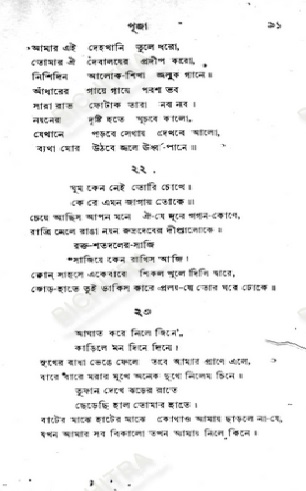 পূজা ৯১
আমার এই দেহখানি তুলে ধরো,
তোমার ঐ দেবালয়ের প্রদীপ করো,
নিশিদিন আলোক-শিখা জ্বলুক গানে॥
আঁধারের গায়ে গায়ে পরশ তব
সারা রাত ফোটাক তারা নব নব।
নয়নের দৃষ্টি হতে ঘুচবে কালো,
যেখানে পড়বে সেথায় দেখবে আলো,
ব্যথা মোর উঠবে জ্বলে ঊর্ধ্ব-পানে॥
২২
ঘুম কেন নেই তোরি চোখে।
কে রে এমন জাগায় তোকে॥
চেয়ে আছিস আপন মনে ঐ-যে দূরে গগন-কোণে,
রাত্রি মেলে রাঙা নয়ন রুদ্রদেবের দীপ্তালোকে॥
রক্ত-শতদলের-সাজি
সাজিয়ে কেন রাখিস আজি।
কোন্ সাহসে একেবারে শিকল খুলে দিলি দ্বারে,
জোড়-হাতে তুই ডাকিস কারে প্রলয়-যে তোর ঘরে ঢোকে॥
২৩
আঘাত করে নিলে জিনে,
কাড়িলে মন দিনে দিনে।
সুখের বাধা ভেঙে ফেলে তবে আমার প্রাণে এলে,
বারে বারে মরার মুখে অনেক দুখে নিলেম চিনে॥
তুফান দেখে ঝড়ের রাতে
ছেড়েছি হাল তোমার হাতে।
বাটের মাঝে হাটের মাঝে কোথাও আমায় ছাড়লে না-যে,
যখন আমার সব বিকালো তখন আমায় নিলে কিনে॥